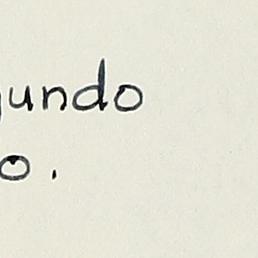 undo
o.